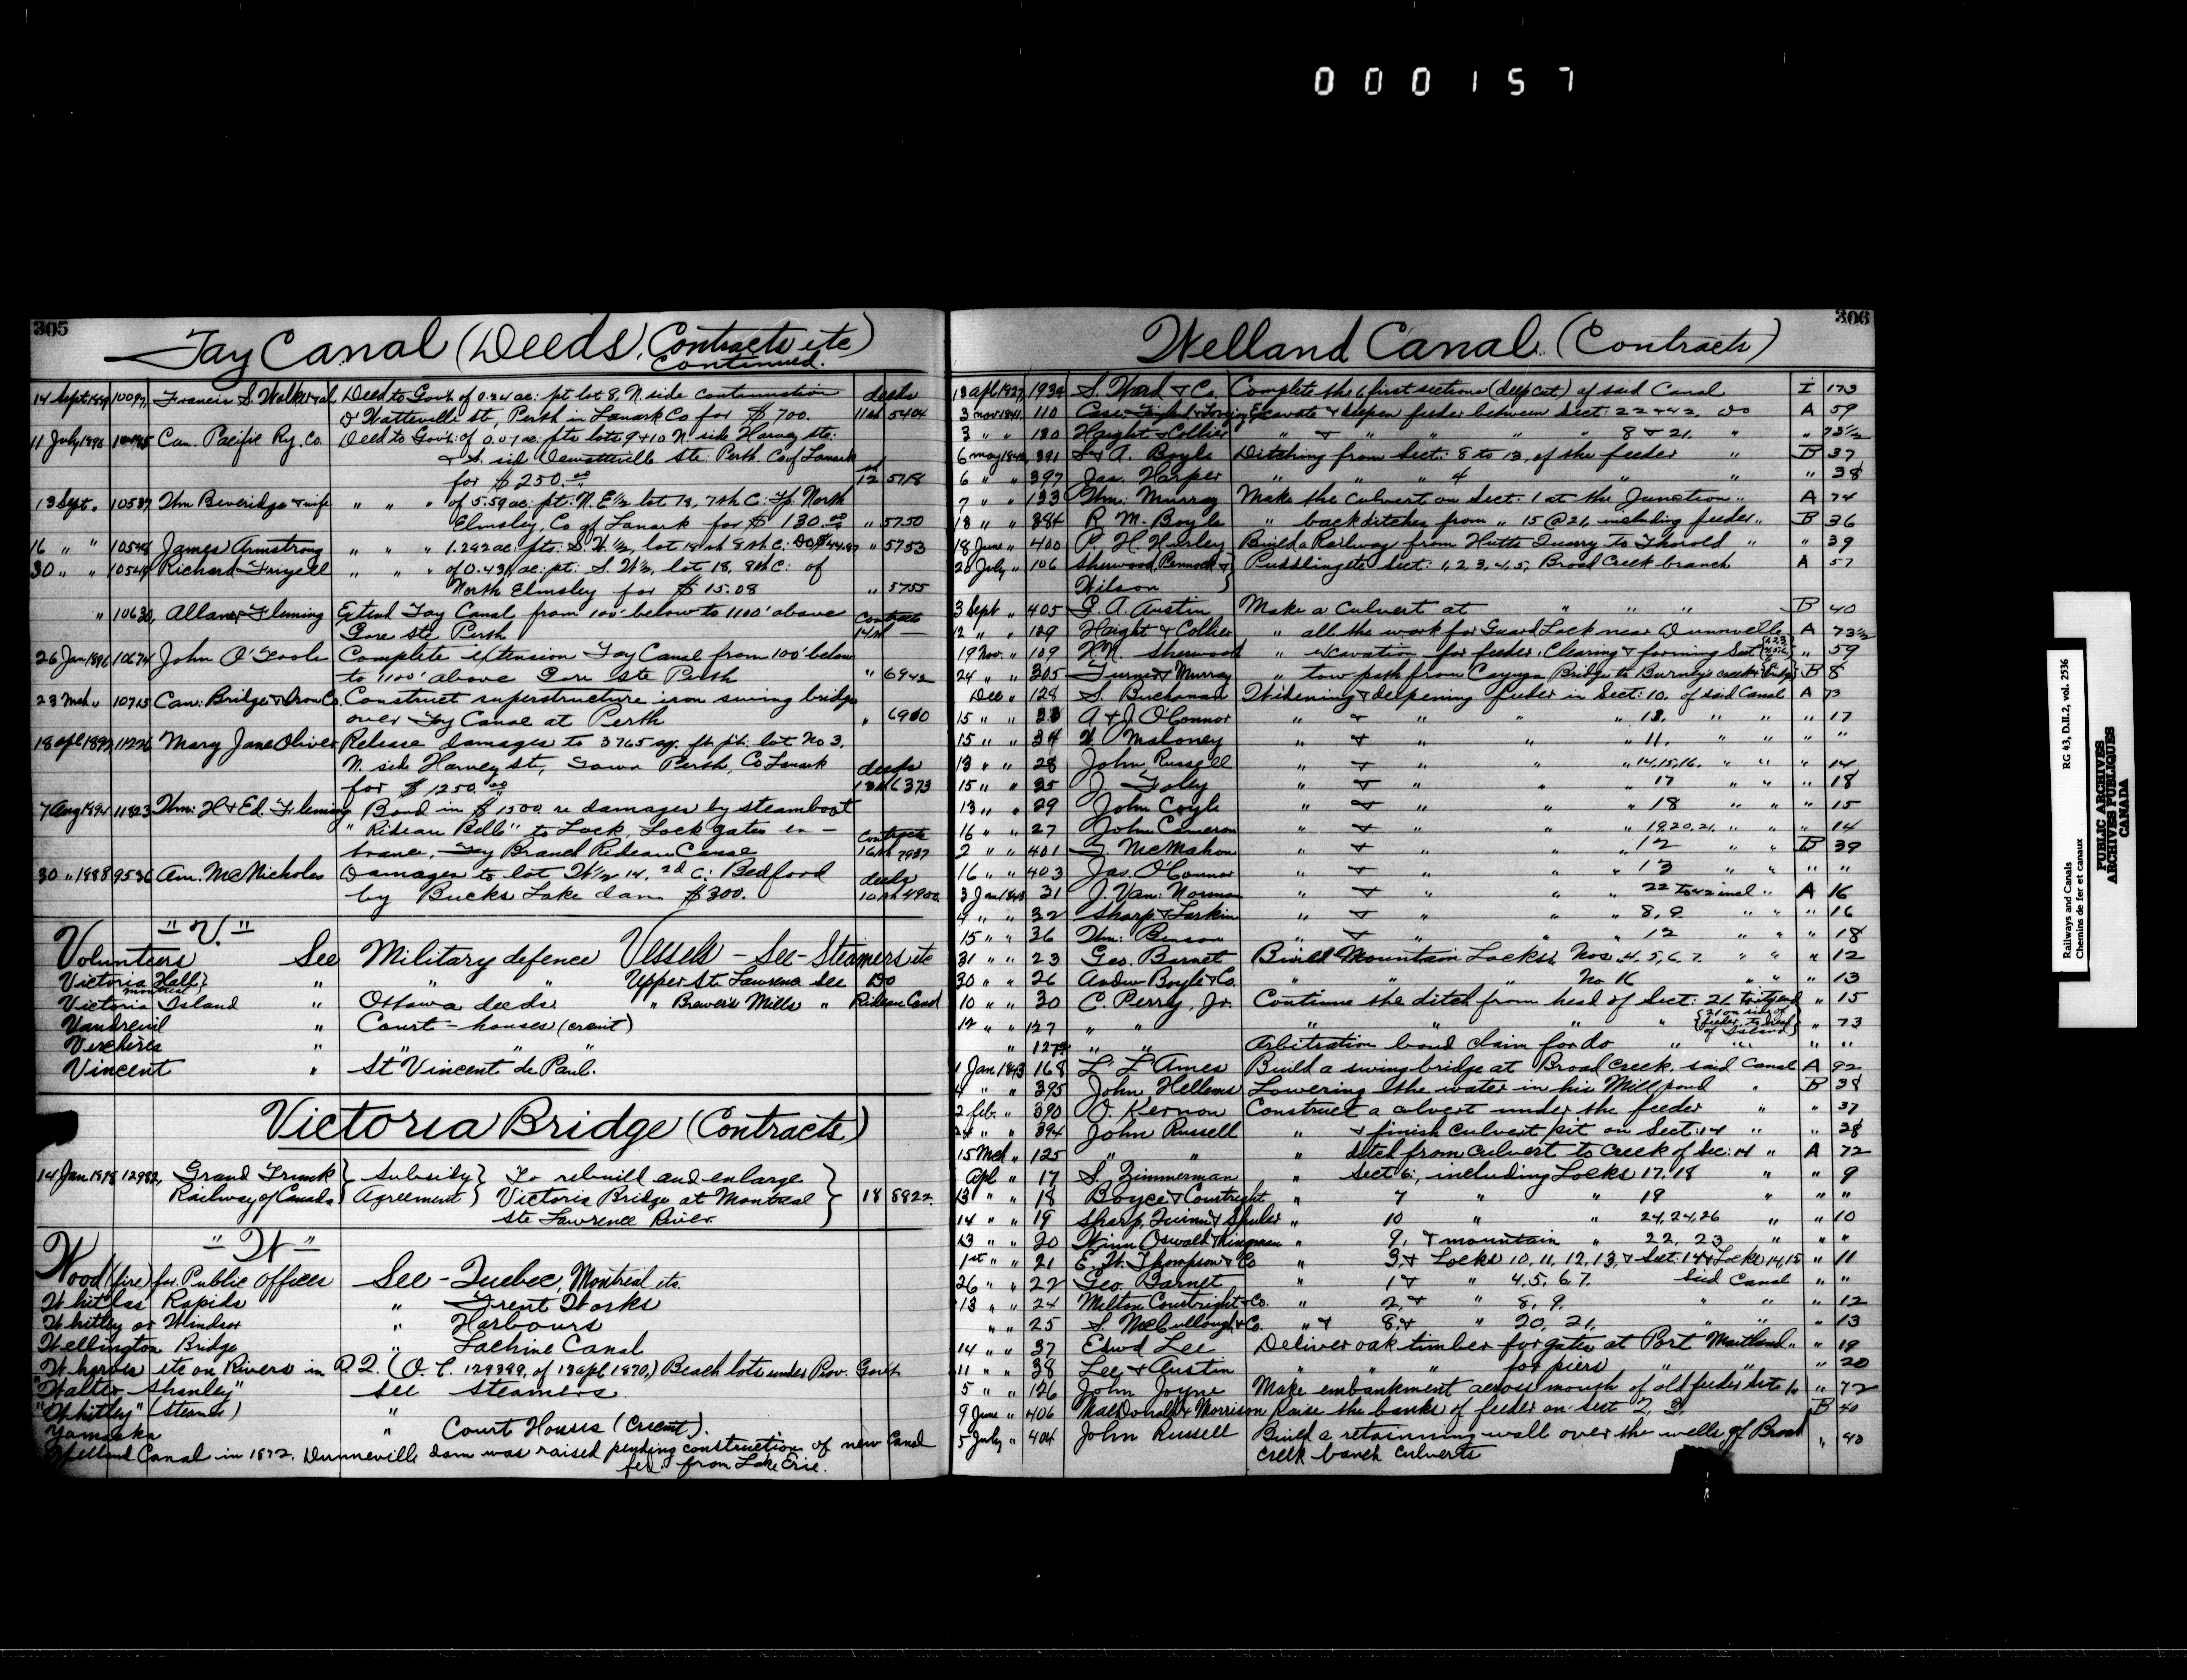 000157
305
Tay Canal (Deeds, Contracts etc)
Continued.
14 Sept 1889 10097, Francis S. Walker et al, Deed to Govt. of 0.24 ac: pt lot 8, N. side continuation deeds
D'Watteville st, Perth in Lanark Co for $700. 11th 5404
11 July 1890 Can. Pacific Ry. Co. Deed to Govt: of 0.07 ac: pts lots 9 & 10 N. side Harvey ste:
& S. side Dewatteville ste: Perth. Co of Lanark
for $250.00 12 5718
13 Sept. " 10537 Wm Beveridge & wife " " " of 5.59 ac: pt: N.E. 1/2 lot 13, 7th C: Tp. North
Elmsley, Co of Lanark for $130.00 " 5750
16 " " 10548 James Armstrong " " " 1.292 ac: pts: S.W. 1/2, lot 18 8th C: Do " 5753
30 " " 10549 Richard Frizell " " " of 0.431 ac: pt: S.W 1/2, lot 18, 8th C: of
North Elmsley for $15.08 " 5755
" 10630, Allan & Fleming Extend Tay Canal from 100' below to 1100' above Contracts
Gore ste Perth 14th —
26 Jan 1891 10674 John O'Toole Complete extension Tay Canal from 100' below
to 1100' above Gore ste Perth " 6942
23 Mch " 10715 Can: Bridge & Iron Co. Construct superstructure iron swing bridge
over Tay Canal at Perth " 6960
18 apl 1892 11226 Mary Jane Oliver Release damages to 3765 sq. ft. pt. lot No 3,
N. side Harvey ste, Town Perth, Co Lanark deeds
for $1250.00 13th 6373
7 Aug 1894 11823 Wm: H & Ed. Fleming Bond in $1500 re damages by steamboat
"Rideau Belle" to Lock, Lock gates en - Contracts
trance, Tay Branch Rideau Canal 16th 7937
30 " 1888 9536 Am. McNicholes Damages to lot W 1/2 14, 2d C: Bedford deeds
by Bucks Lake dam $300. 10th 4900.
"V."
Volunteers See Military defence Vessels - See - Steamers etc
Victoria Hall } Montreal " " Upper St. Lawrence see Do
Victoria Island " Ottawa deeds " Brewer's Mills " Rideau Canal
Vaudreuil " Court-houses (crent)
Verchères " " " "
Vincent " St Vincent de Paul.
Victoria Bridge (Contracts)
14 Jan 1898 12982, Grand Trunk } Subsidy } To rebuild and enlarge }
Railway of Canada } Agreement } Victoria Bridge at Montreal } 18 8822.
Ste Lawrence River.
"W"
Wood (fire) for Public offices See - Quebec, Montreal etc.
Whitlas Rapids " Trent Works
Whitley or Windsor " Harbours
Wellington Bridge " Lachine Canal
Wharves etc on Rivers in P.Q. (O.C. 129399, of 13 apl 1870,) Beach lots under Prov. Govt
"Walter Shanley" see steamers.
"Whitley" (steamer) "
Yamaska " Court Houses (Crcent).
Welland Canal in 1872. Dunneville dam was raised pending construction of new Canal
from Lake Erie.
306
Welland Canal. (Contracts)
18 apl 1827, S. Ward & Co. Complete the 6 first sections (deep cut) of said Canal I 173
3 nov 1841, 110 Case, Excavate & deepen feeder between Sect: 22 & 42, do A 59
3 " " 180 Haight & Collier " & " " " " 8 & 21. " " 73 1/2
6 may 1842, 391 S & A. Boyle Ditching from Sect: 8 to 13, of the feeder " B 37
6 " " 397 Jas. Harper " " " 4 " " " 38
7 " " 133 Wm: Murray Make the culvert on Sect. 1 at the Junction " A 74
18 " " 384 R. M. Boyle " backditches from " 15 @ 21, including feeder " B 36
18 June " 400 P. H. Hurley Build a Railway from Hutts Quarry to Thorold " " 39
20 July " 106 Sherwood, Pennock & } Puddling etc Sect: 1, 2, 3, 4, 5, Broad Creek branch A 57
Wilson }
3 Sept " 405 G. A. Austin Make a culvert at " " " B 40
12 " " 189 Haight & Collier " all the work for Guard Lock near Dunnville A 73 1/2
19 Nov. " 109 Sherwood " excavation for feeder, Clearing & forming Sect " 59
24 " " 305 Turner & Murray " tow path from Cayuga Bridge to Burnt creek B 8
Dec " 128 S. Buchanan Widening & deepening feeder in Sect: 10, of said Canal A 73
15 " " 33 A & J. O'Connor " & " " " 13. " " " 17
15 " " 34 W. Maloney " & " " " 11. " " " "
13 " " 28 John Russell " & " " " 14, 15, 16. " " " 14
15 " " 35 J. Foley " & " " " 17 " " " 18
13 " " 29 John Coyle " & " " " 18 " " " 15
16 " " 27 John Cameron " & " " " 19, 20, 21, " " " 14
2 " " 401 McMahon " & " " " 12 " " B 39
16 " " 403 Jas. O'Connor " & " " " 13 " " " "
3 Jan 1843 31 J. Van: Norman " & " " " 22 to 42 incl " A 16
4 " " 32 Sharp & Larkin " & " " " 8, 9 " " " 16
15 " " 36 Wm: Benson " & " " " 12 " " " 18
31 " " 23 Geo. Barnet Build Mountain Locks, Nos. 4, 5, 6, 7. " " " 12
30 " " 26 Andw Boyle & Co. " " " No 16 " " " 13
10 " " 30 C. Perry, Jr. Continue the ditch from head of Sect: 21 to its end " 15
12 " " 127 " " " " " " { 21 on side of feeder, to head of Island } " 73
" 127 1/2 " " Arbitration bond claim for do " " " "
1 Jan 1843 168 L L Ames Build a swing bridge at Broad Creek. said Canal A 92
4 " " 395 John Hellems Lowering the water in his Mill pond " B 38
2 feb. " 390 O. Kernon Construct a culvert under the feeder " " 37
24 " " 394 John Russell " & finish culvert pit on Sect: 14 " " 38
15 Mch " 125 " " " ditch from culvert to creek of Sec: 14 " A 72
Apl " 17 S. Zimmerman " Sect 6, including Locks 17. 18 " " 9
13 " " 18 Boyce & Courtright " 7 " " 19 " " "
14 " " 19 Sharp, Quinn & Spuler " 10 " " 24, 24, 26 " " 10
13 " " 20 Winn Oswald & Kingman " 9, & mountain " 22, 23 " " "
1st " " 21 E. W. Thompson & Co " 3, & Locks 10, 11, 12, 13, & Sect. 14 & Locks 14, 15 " 11
26 " " 22 Geo. Barnet " 1 & " 4, 5, 6, 7. said Canal " "
13 " " 24 Milton Courtright & Co. " 2, & " 8, 9, " " " 12
" " 25 S. McCullough & Co. " & 8, & " 20, 21, " " " 13
14 " " 37 Edwd Lee Deliver oak timber for gates at Port Maitland " " 19
11 " " 38 Lee & Austin " " " for piers " " " 20
5 " " 126 John Joyne Make embankment across mouth of old feeder Sect 1 " 72
9 June " 406 MacDonald & Morrison Raise the banks of feeder on Sect 2, 3, B 40
5 July " 404 John Russell Build a retainning wall over the wells of Broad " 40
creek banch culverts
Railways and Canals RG 43, D.II.2, vol. 2536
Chemins de fer et canaux
PUBLIC ARCHIVES
ARCHIVES PUBLIQUES
CANADA